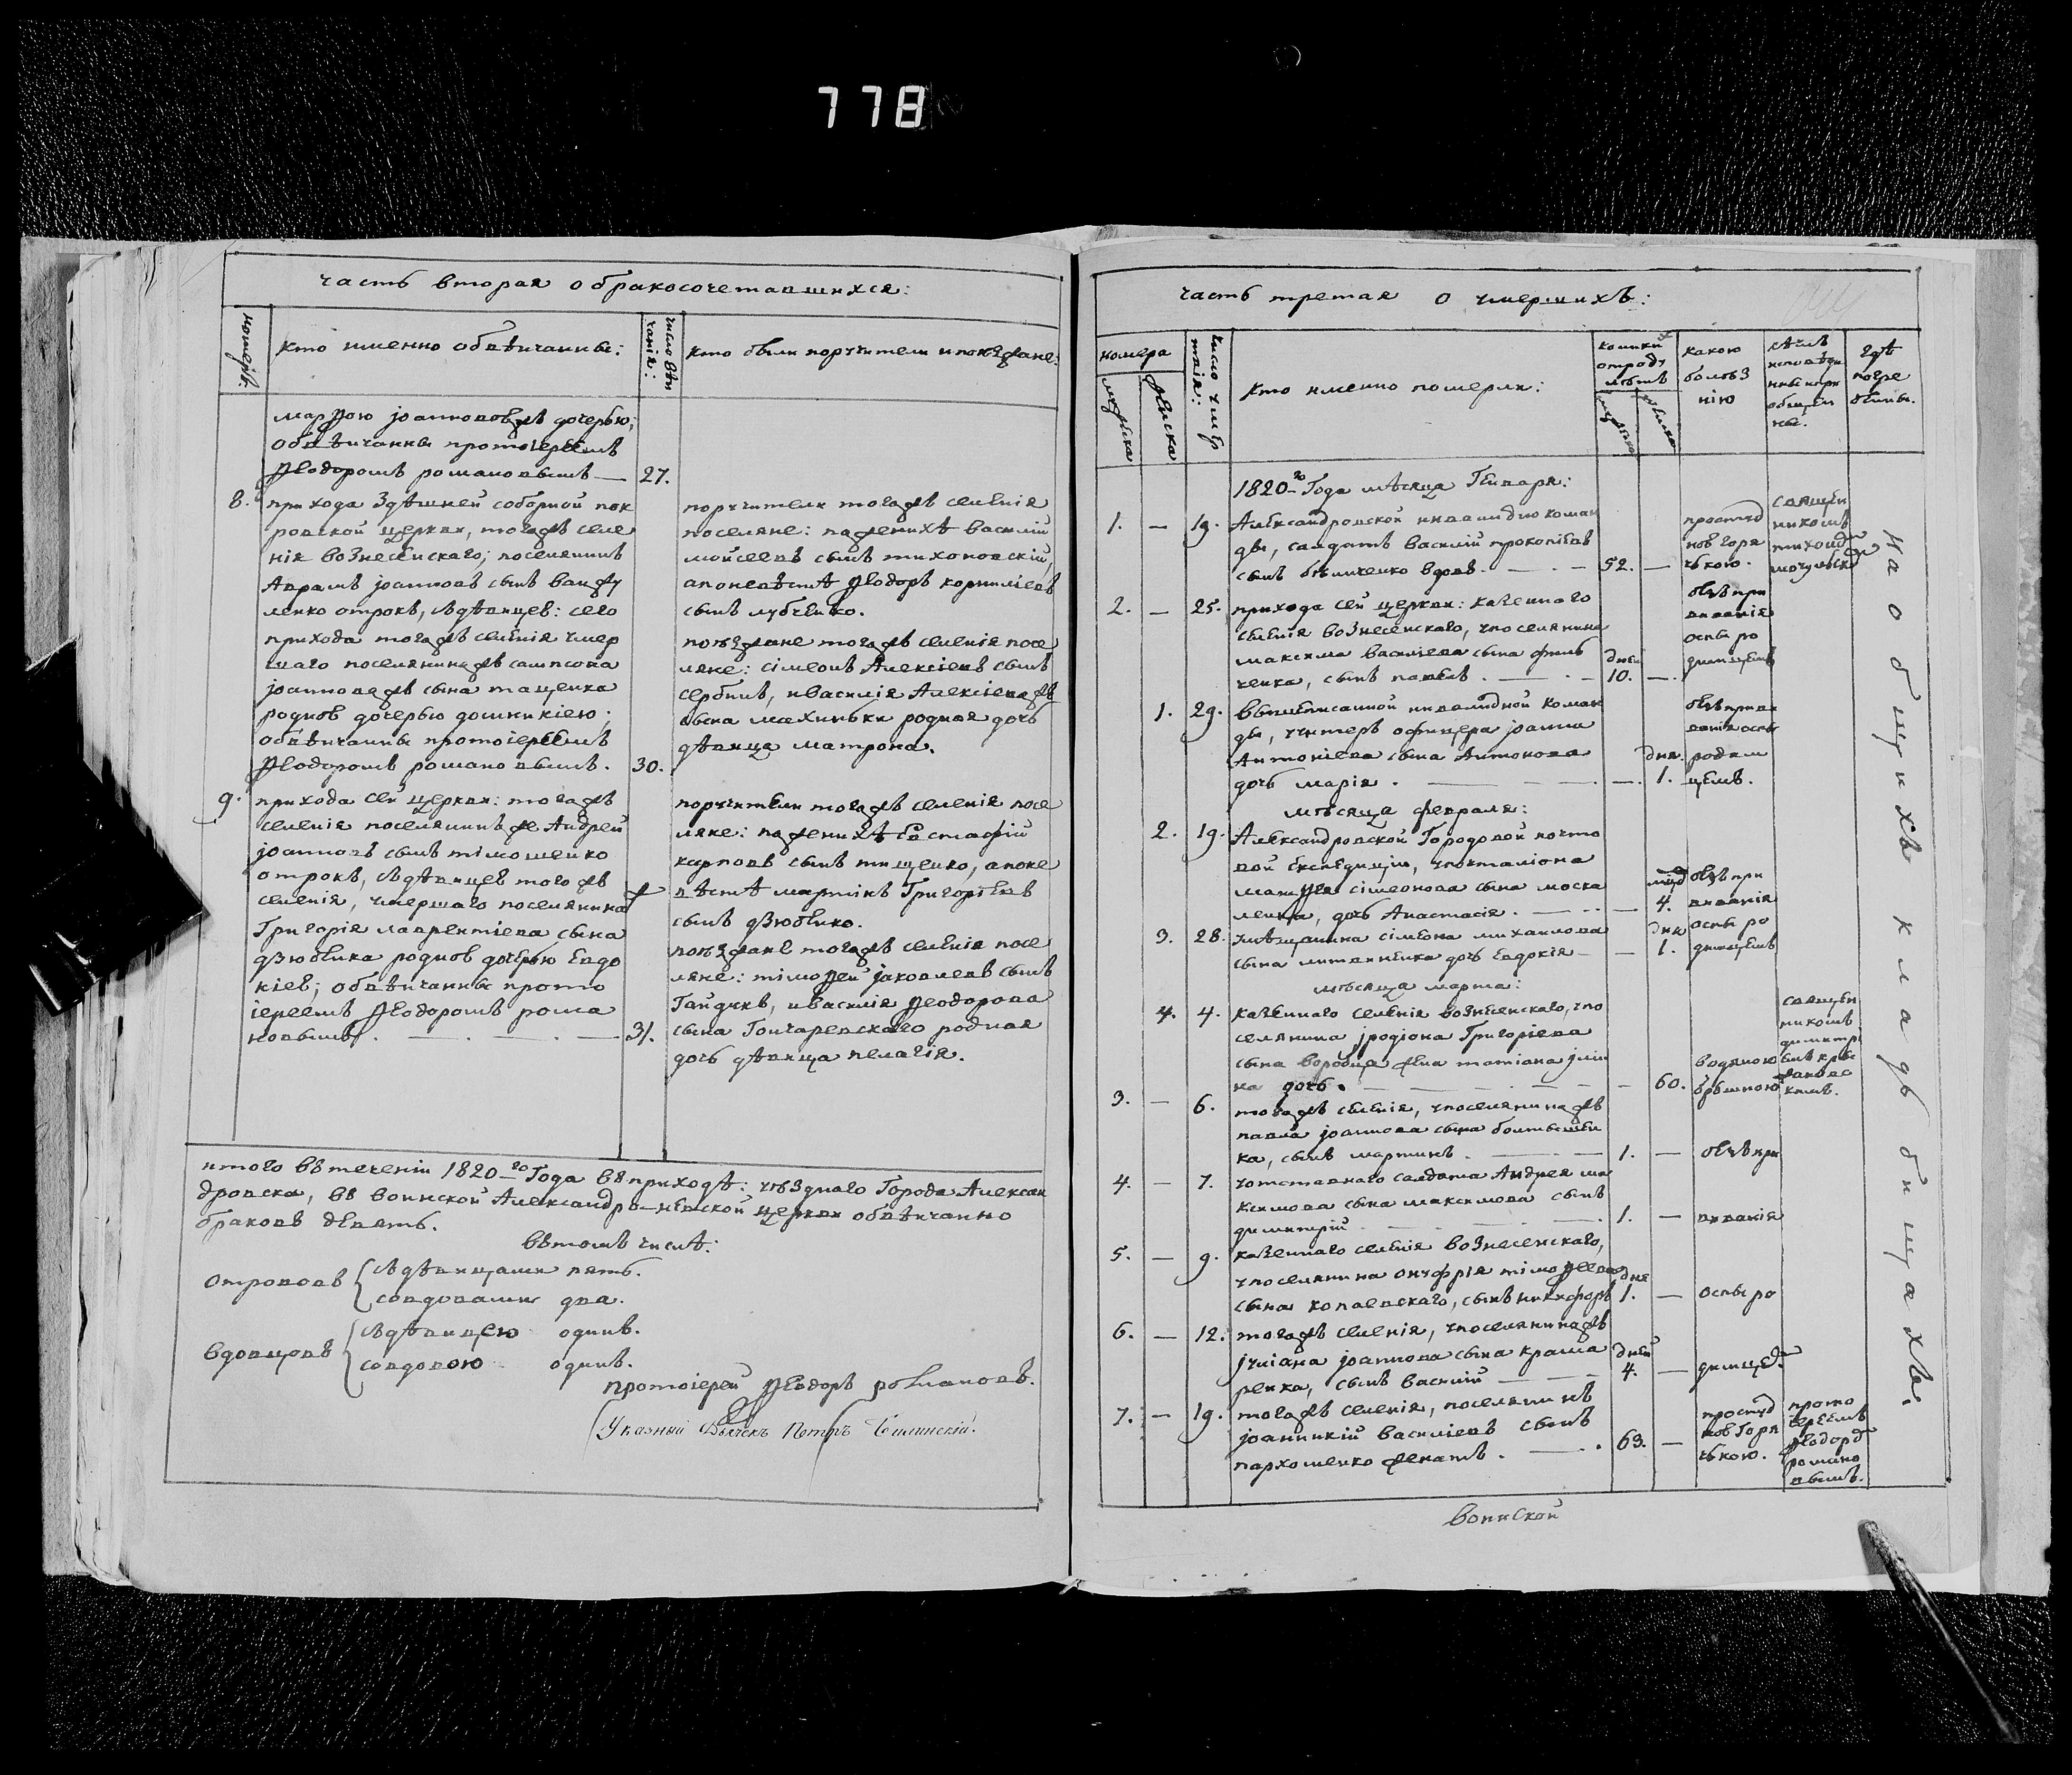 778
часть вторая о бракосочетавшихся:
номеръ:
кто именно обвѣнчанны:
число вѣн
чанія:
кто были поручители и поѣзжане:
марѳою іоанновожъ дочерью;
обвѣнчанны протоіереемъ
Ѳеодоромъ романовымъ —
27.
8.
прихода здѣшней соборной пок
ровской церкви, тогожъ селе
нія вознесенскаго; поселянинъ
Аврамъ іоанновъ сынъ
ленко отрокъ, съдѣвицею: сего
прихода тогожъ селенія умер
шаго поселянинажъ сампсона
іоанноважъ сына тащенка
родною дочерью домникіею;
обвѣнчанны протоіереемъ
Ѳеодоромъ романовымъ.
30.
поручители тогожъ селенія
поселяне: поженихѣ василій
мойсеевъ сынъ тихоновскій,
апоневѣстѣ Ѳеодоръ корниліевъ
сынъ лубченко.
поѣзжане тогожъ селенія посе
ляне: сімеонъ Алексіевъ сынъ
сербинъ, ивасилія Алексіеважъ
сына махиньки родная дочь
дѣвица матрона.
9.
прихода сей церкви: тогожъ
селенія поселянинъ же Андрей
іоанновъ сынъ тімошенко
отрокъ, съдѣвицею тогожъ
селенія, умершаго поселянинаж
Григорія лаврентіева сына
дзюбенка родною дочерью Евдо
кіею; обвѣнчанны прото
іереемъ Ѳеодоромъ рома
новымъ. — . — . —
31.
поручители тогожъ селенія посе
ляне: поженихѣ Евстафій
карповъ сынъ тищенко, апоне
вѣстѣ мартинъ Григоріевъ
сынъ дзюбенко.
поѣзжане тогожъ селенія посе
ляне: тімоѳей іаковлевъ сынъ
Гайдукъ, ивасилія Ѳеодорова
сына Гончаревскаго родная
дочь дѣвица пелагія.
итого втеченіи 1820–го Года вприходѣ: уѣзднаго Города Алексан
дровска, вѣ воинской Александро–невской церкви обвѣнчанно
браковъ девять.
вѣтомъ числѣ:
Отроковъ { съдѣвицами пять.
совдовами два.
Вдовцовъ { съдѣвицею одинъ.
совдовою одинъ.
протоіерей Ѳеодоръ романовъ.
Указный Дьячекъ Петръ
часть третая о умершихъ:
номера
мужеска
женска
число умер
твія:
кто именно померли:
коликихъ
отроду
лѣтъ
какою
болѣз
нію
кѣмъ
исповѣди
ны ипри
общен
ны.
Гдѣ
погре
бенны.
1820–го Года мѣсяца Генваря:
1. — 19. Александровской инвалидно коман
ды, салдатъ василій прокопіевъ
сынъ бѣличенко вдовъ. — . —
52. —
простуд
ною горя
чькою.
священ
никомъ
2. — 25. прихода сей церкви: казеннаго
селенія вознесенскаго, упоселянина
максима василіева сына
ченка, сынъ павелъ . — . —
дней
10. —
отъ при
виванія
оспы ро
димцемъ
1. 29. вышеписанной инвалидной коман
ды, унтеръ офицера іоанна
Антоніева сына Антонова
дочь марія . —
— дня. 1.
отъ приви
ванія оспы
родим
цемъ.
мѣсяца февраля:
2. 19. Александровской Городовой почто
вой Експедиціи, упочталіона
матѳея сімеонова сына моска
ленка, дочь Анастасія . — . —
— 4.
отъ при
виванія
3. 28. умѣщанина сімеона михаилова
сына литвиненка дочь Евдокія —
— дня 1.
оспы ро
димцемъ
мѣсяца марта:
4. 4. казеннаго селенія вознесенскаго, упо
селянина іродіона Григоріева
сына воробца жена татіана іли
на дочь. —
— 60.
водяною
бременою
священ
никомъ
димитрі
емъ
3. — 6. тогожъ селенія, упоселянинажъ
павла іоаннова сына
ка, сынъ мартинъ . —
1. —
отъ при
4. — 7. уотставнаго салдата Андрея ма
ксимова сына максимова сынъ
димитрій . —
1. —
виванія
5. — 9. казеннаго селенія вознесенскаго,
упоселянина онуфрія тімоѳеева
сына копаевскаго, сынъ никифоръ
дня
1. —
оспы ро
6. — 12. тогожъ селенія, упоселянинажъ
іуліана іоаннова сына крама
ренка, сынъ василій —
дней
4. —
димцемъ
7. — 19. тогожъ селенія, поселянинъ
іоанникій василіевъ сынъ
пархоменко женатъ . — .
63. —
простуд
ною Горя
чькою.
прото
іереемъ
Ѳеодоръ
романо
вымъ.
на общихъ кладбищахъ.
воинской